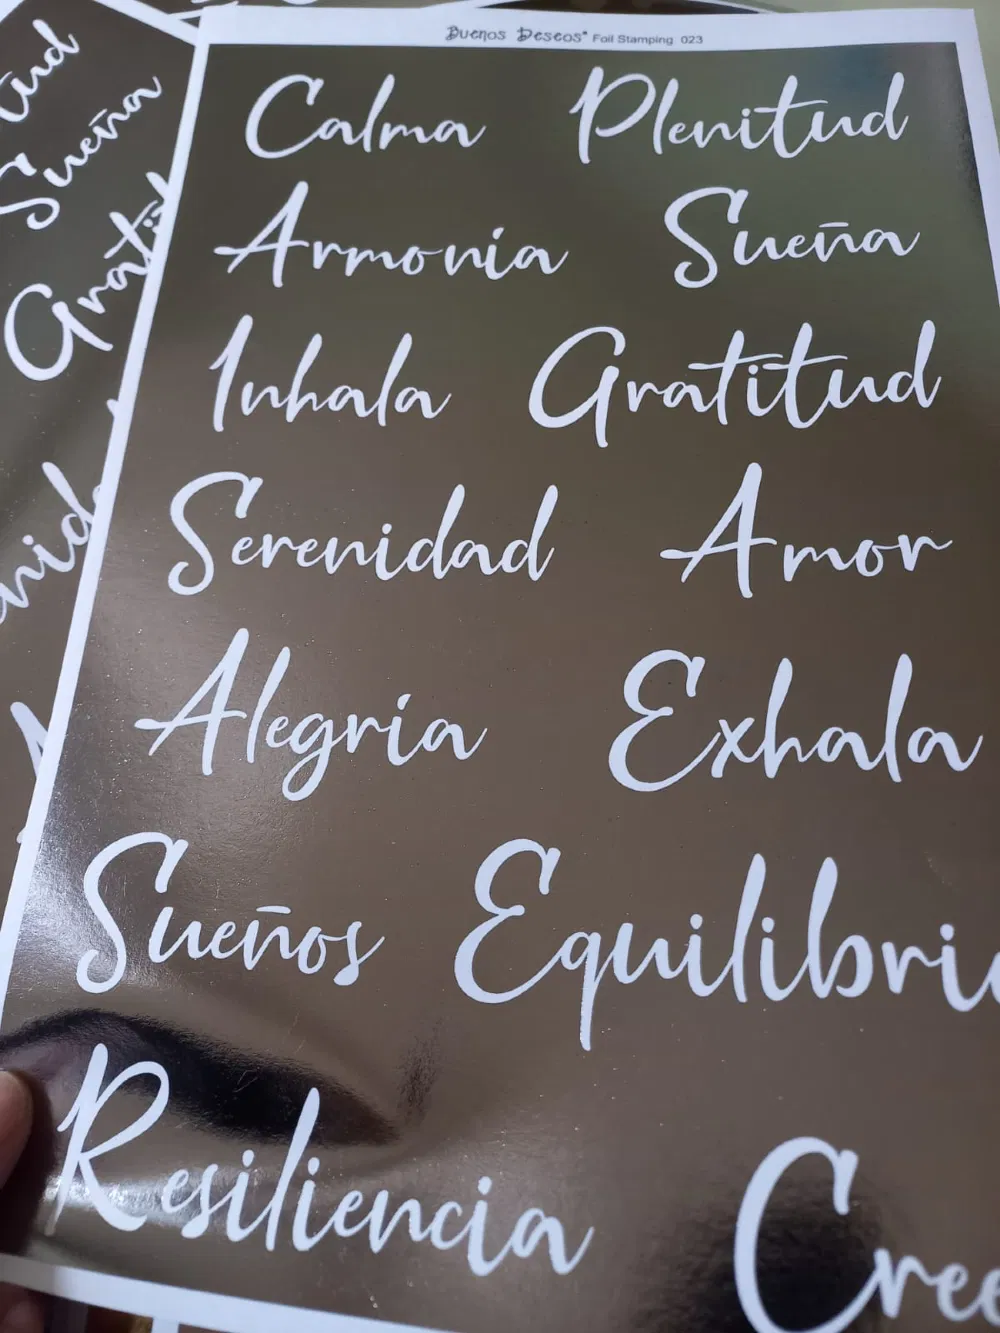 Buenos Deseos® Foil Stamping 023
Calma Plenitud
Armonia Sueña
Inhala Gratitud
Serenidad Amor
Alegria Exhala
Sueños Equilibri
Resiliencia Cree
tud
Sueña
Gratit
enid